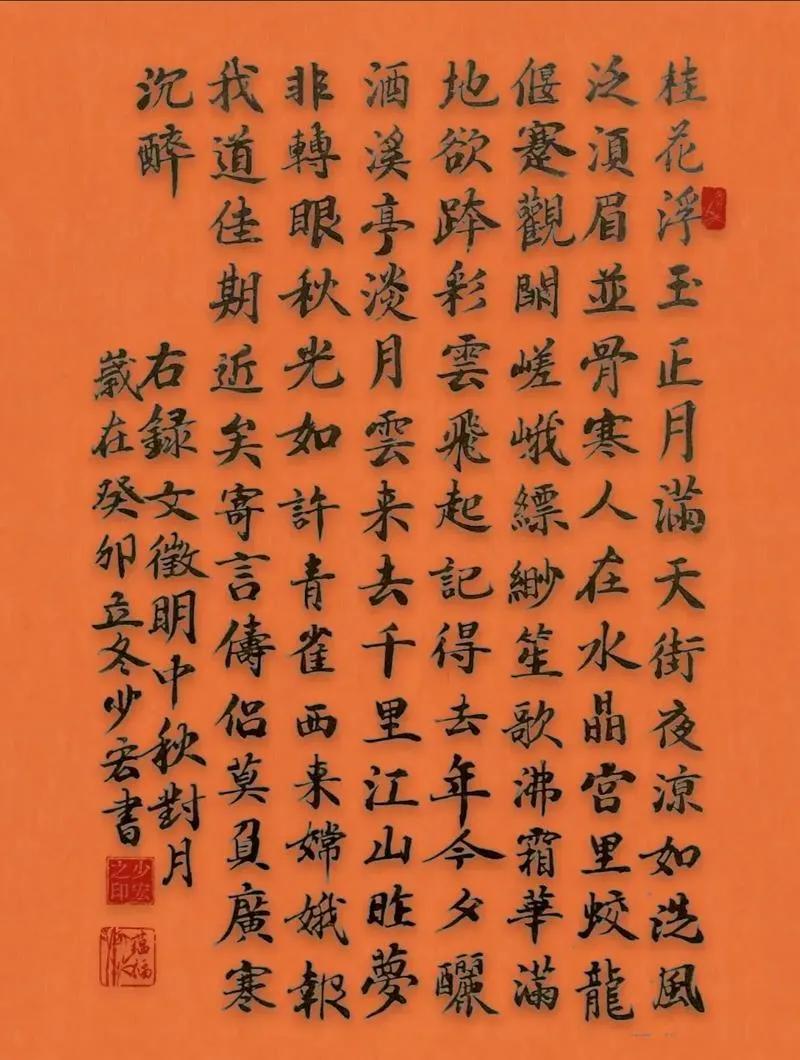 桂花浮玉正月滿天街夜涼如洗風
泛湏眉並骨寒人在水晶宮里蛟龍
偃蹇觀闕嵯峨縹緲笙歌沸霜華滿
地欲跨彩雲飛起記得去年今夕釃
酒溪亭淡月雲来去千里江山昨夢
非轉眼秋光如許青雀西来嫦娥報
我道佳期近矣寄言儔侶莫負廣寒
沉醉
右録文徵明中秋對月
歲在癸卯立冬少宏書
少宏之印